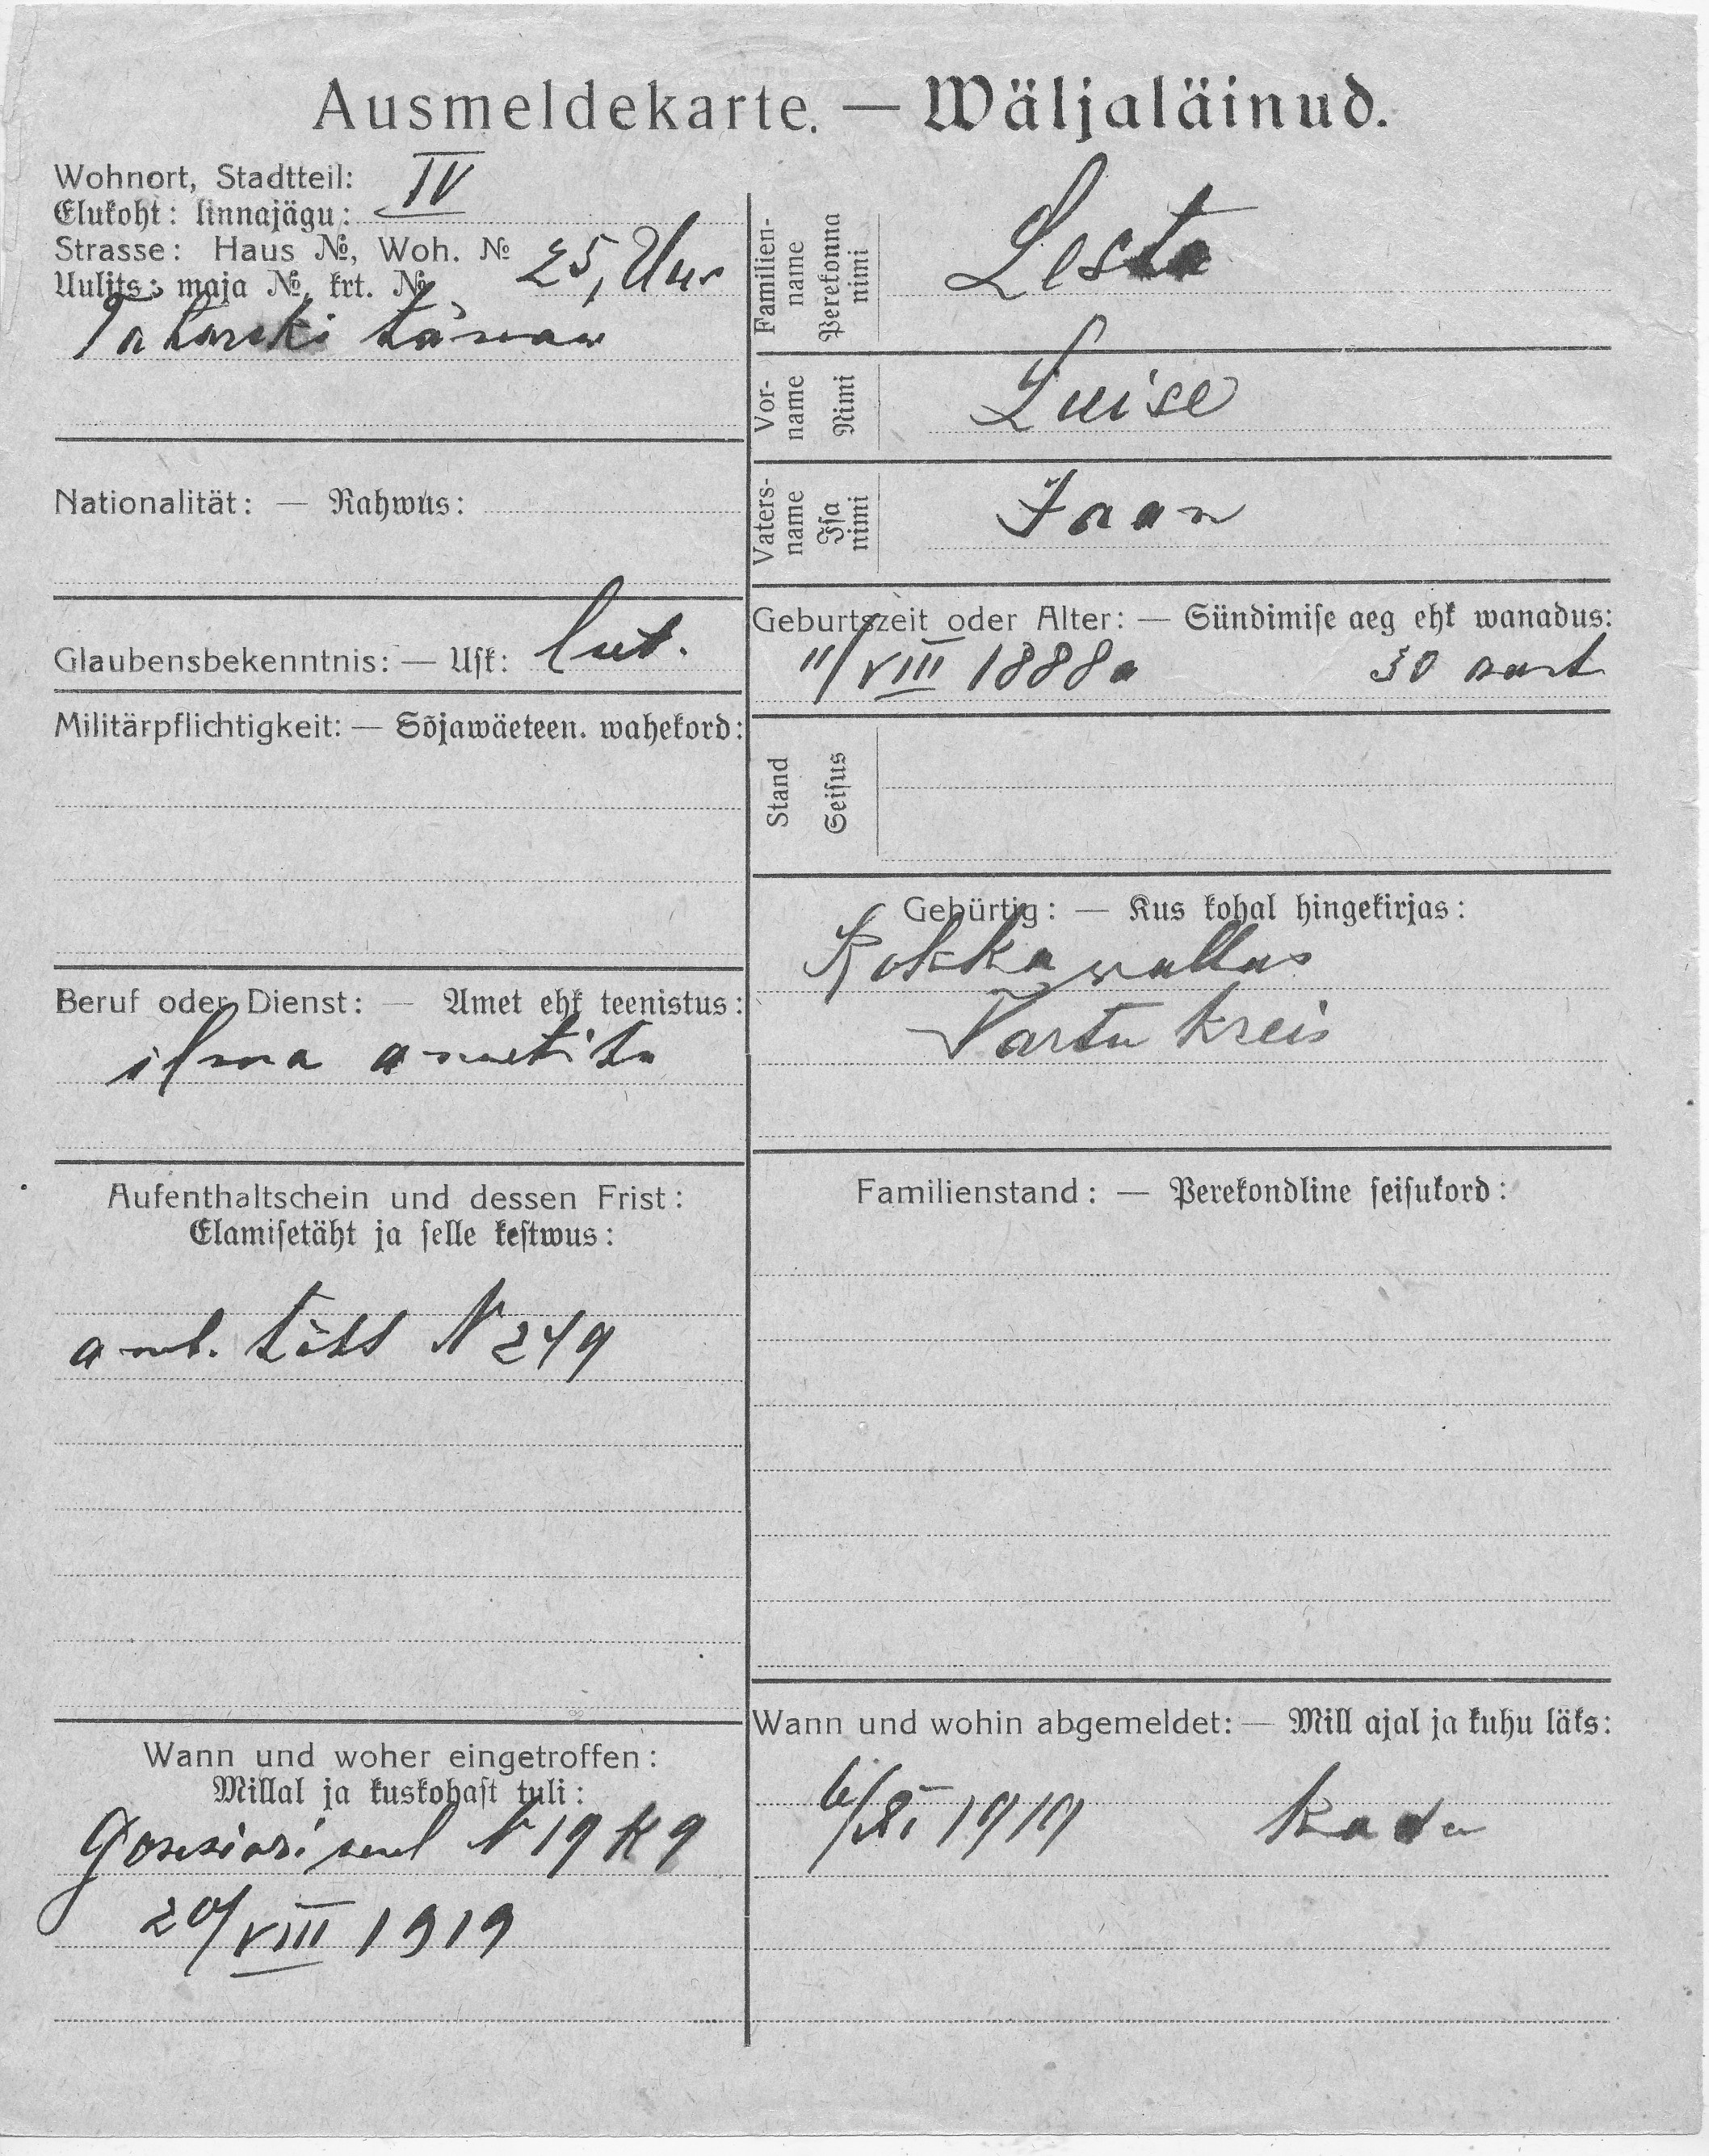 Ausmeldekarte. — Wäljaläinud.
Wohnort, Stadtteil: IV
Elukoht: linnajägu:
Strasse: Haus №, Woh. № 25, Uus
Uulits: maja №, krt. №
Tatarski tänaw
Nationalität: — Rahwus:
Glaubensbekenntnis: — Usk: lut.
Militärpflichtigkeit: — Sõjawäeteen. wahekord:
Beruf oder Dienst: — Amet ehk teenistus:
ilma ametita
Aufenthaltschein und dessen Frist:
Elamisetäht ja selle kestwus:
amb. täht N 249
Wann und woher eingetroffen:
Millal ja kuskohast tuli:
Gonsiori uul N 19 K 9
20/VIII 1919
Familien-name Perekonna nimi Lesta
Vor-name Nimi Luise
Vaters-name Isa nimi Jaan
Geburtszeit oder Alter: — Sündimise aeg ehk wanadus:
11/VIII 1888a 30 aast
Stand Seisus
Gebürtig: — Kus kohal hingekirjas:
Kokka wallas
Tartu Kreis
Familienstand: — Perekondline seisukord:
Wann und wohin abgemeldet: — Mill ajal ja kuhu läks:
1919